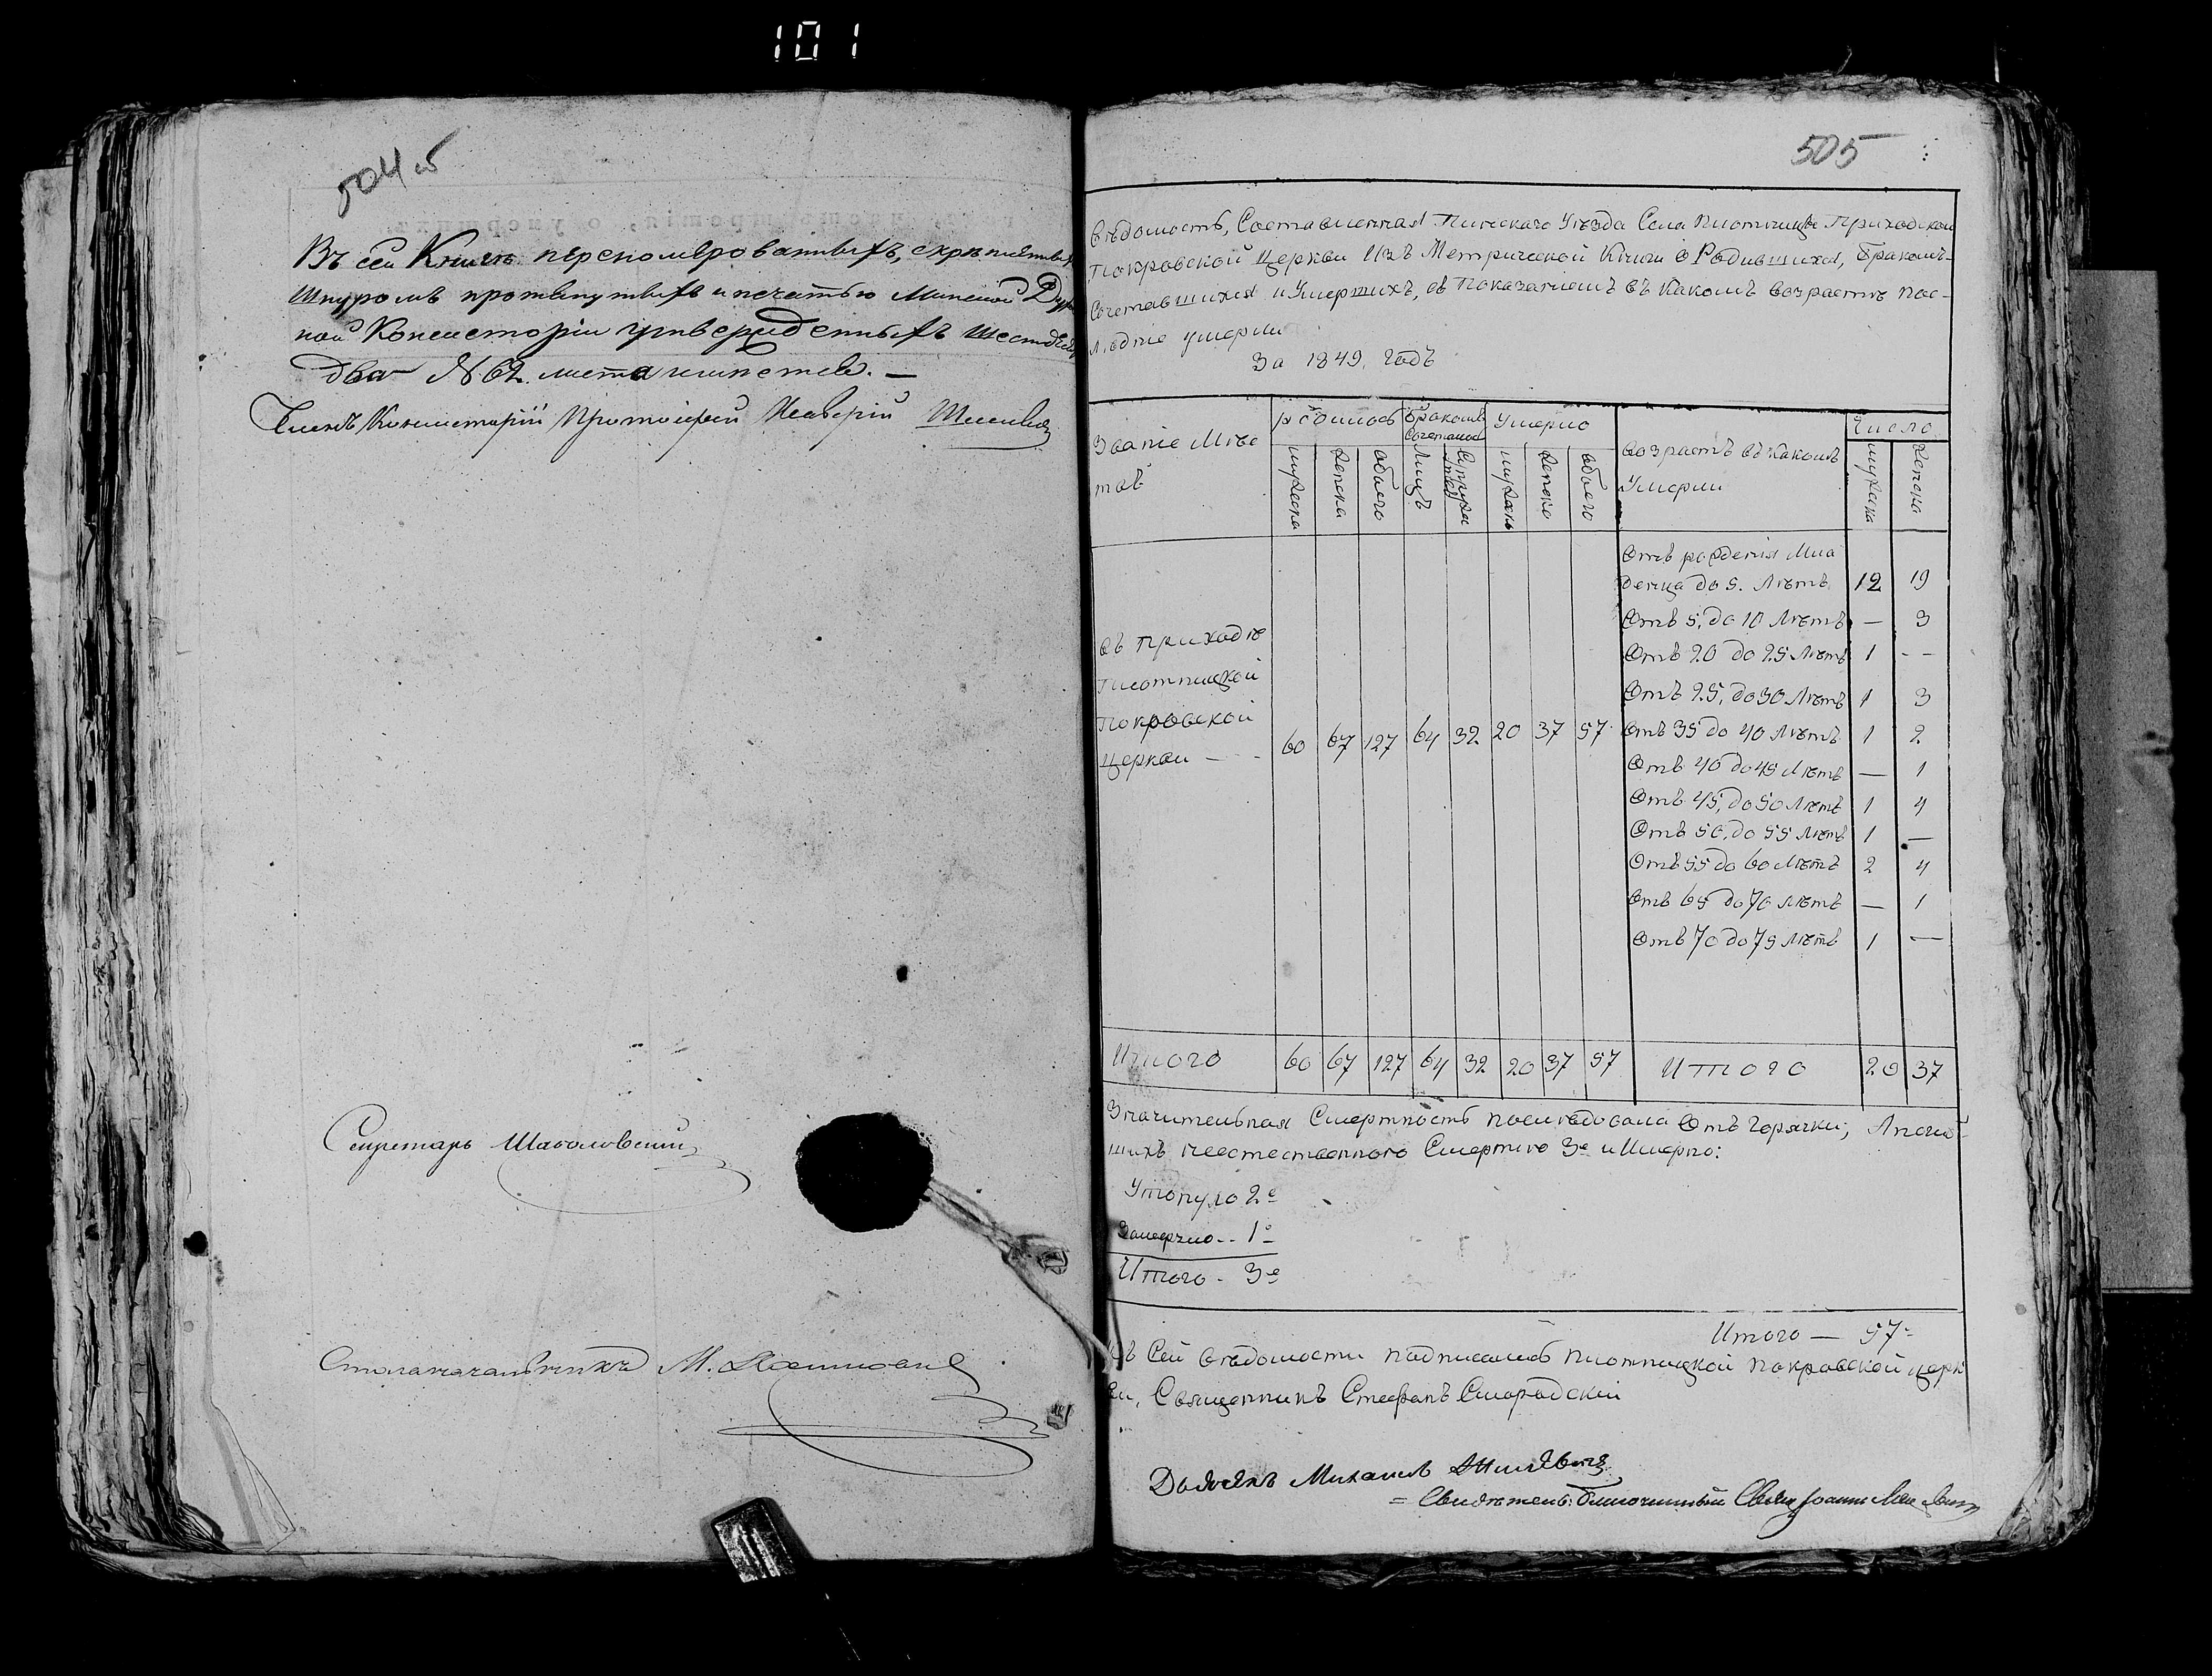 101
504 об
Въ сей Книгѣ перенумерованныхъ, скрѣпленныхъ
Шнуромъ протянутыхъ и печатью Минской Духов
ной Консисторіи утвержденныхъ шестьдесят
два № 62. листа имѣется. —
Членъ Консисторіи Протоіерей
Секретарь
Столоначальникъ М.
505
Вѣдомость, Составленная Пинскаго Уѣзда Села Плотницы Приходской
Покровской Церкви Изъ Метрической Книги о Родившихся, Бракомъ-
Сочетавшихся и Умершихъ, съ Показаніемъ въ Какомъ возрастѣ Пос-
лѣдніе умерли
За 1849. Годъ
Званіе Мѣс
тъ
родилось
Бракомъ
Сочеталось
Умерло
возрастъ въ Какомъ
Умерли
Число
мужеска
женска
обоего
Лицъ
Супруже
ствъ
мужеск
женска
обоего
мужеска
женска
Отъ рожденія Мла
денца до 5. Лѣтъ 12 19
Отъ 5, до 10 Лѣтъ — 3
Отъ 20 до 25 Лѣтъ 1 - -
Отъ 25, до 30 Лѣтъ 1 3
въ приходѣ
Плотницкой
Покровской
Церкви — - 60 67 127 64 32 20 37 57 Отъ 35 до 40 Лѣтъ 1 2
Отъ 40 до 45 Лѣтъ — 1
Отъ 45, до 50 Лѣтъ 1 4
Отъ 50, до 55 Лѣтъ 1 —
Отъ 55 до 60 Лѣтъ 2 4
Отъ 65 до 70 Лѣтъ — 1
Отъ 70 до 75 Лѣтъ 1 —
Итого 60 67 127 64 32 20 37 57 Итого 20 37
Значительная Смертность послѣдовала Отъ горячки, А погиб-
шихъ неестественною Смертію 3е
Утонуло 2е
Замерзло.. 1-
Итого - 3е
Итого — 57-
Къ Сей вѣдомости подписались Плотницкой Покровской церк
ви, Священникъ Стефанъ Смородскій
Дьячекъ Михаилъ
= Благочинный